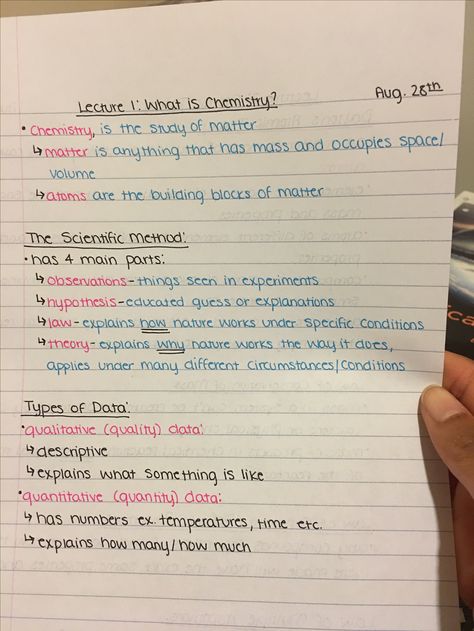 Aug. 28th
Lecture 1: What is Chemistry?
• Chemistry, is the study of matter
↳ matter is anything that has mass and occupies space/
volume
↳ atoms are the building blocks of matter
The Scientific Method:
• has 4 main parts:
↳ observations - things seen in experiments
↳ hypothesis - educated guess or explanations
↳ law - explains how nature works under specific conditions
↳ theory - explains why nature works the way it does,
applies under many different circumstances/conditions
Types of Data:
• qualitative (quality) data:
↳ descriptive
↳ explains what something is like
• quantitative (quantity) data:
↳ has numbers ex. temperatures, time etc.
↳ explains how many/how much